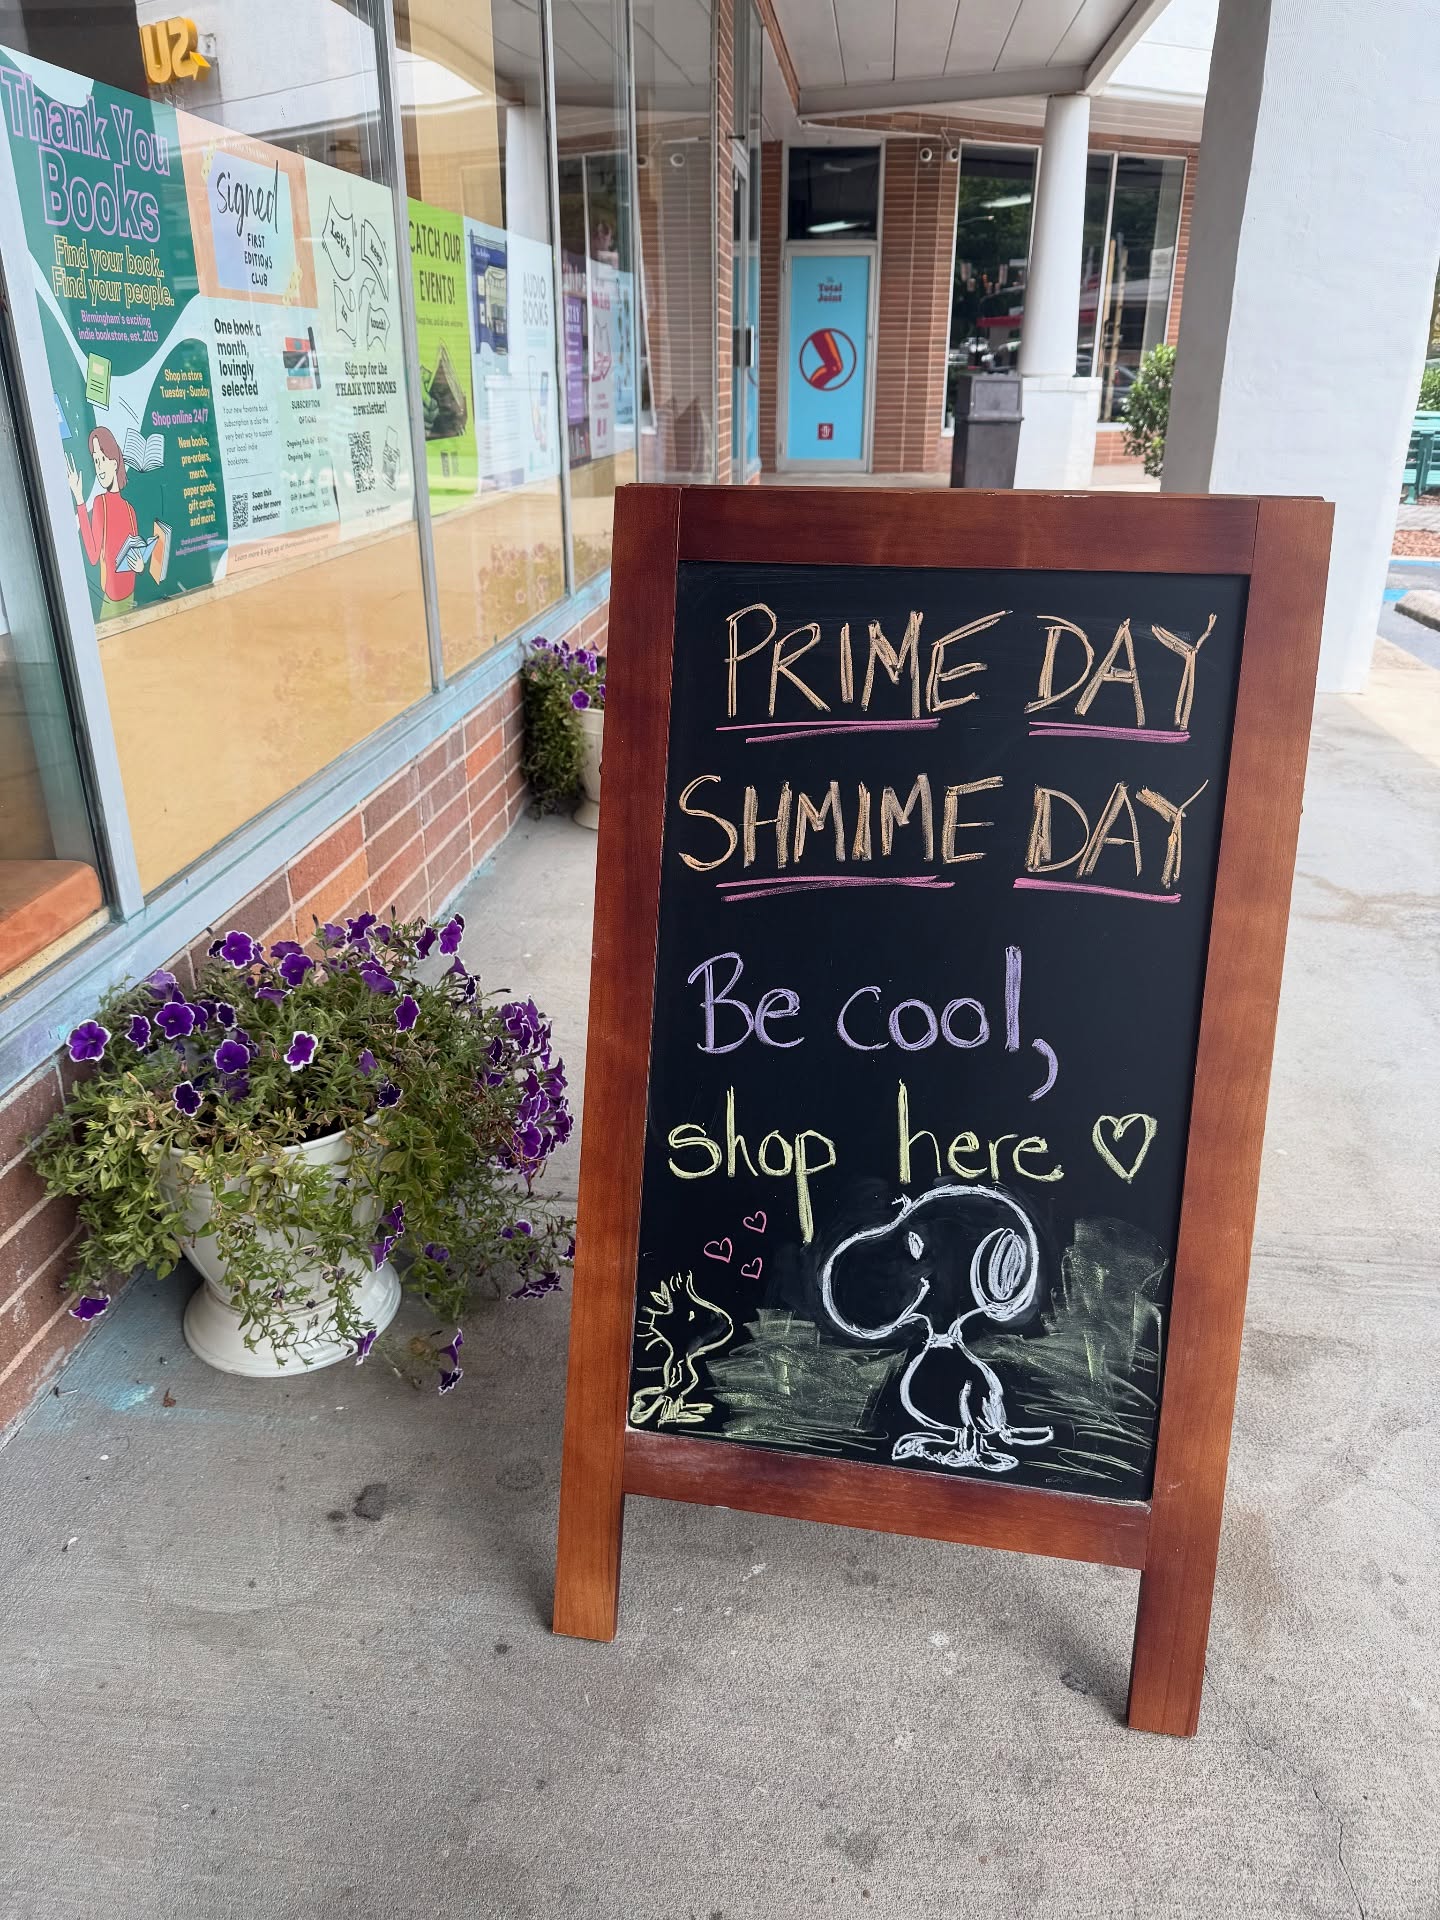 Thank You
Books
Find your book.
Find your people.
Birmingham's exciting
indie bookstore, est. 2019
Shop in store
Tuesday - Sunday
Shop online 24/7
New books,
pre-orders,
merch,
paper goods,
gift cards,
and more!
signed
FIRST
EDITIONS
CLUB
One book a
month,
lovingly
selected
Your new favorite book
subscription is also the
very best way to support
your local indie
bookstore.
Scan this
code for more
information!
SUBSCRIPTION
OPTIONS
Let's
keep
in
touch!
Sign up for the
THANK YOU BOOKS
newsletter!
CATCH OUR
EVENTS!
AUDIO
BOOKS
The
Total
Joint
PRIME DAY
SHMIME DAY
Be cool,
shop here